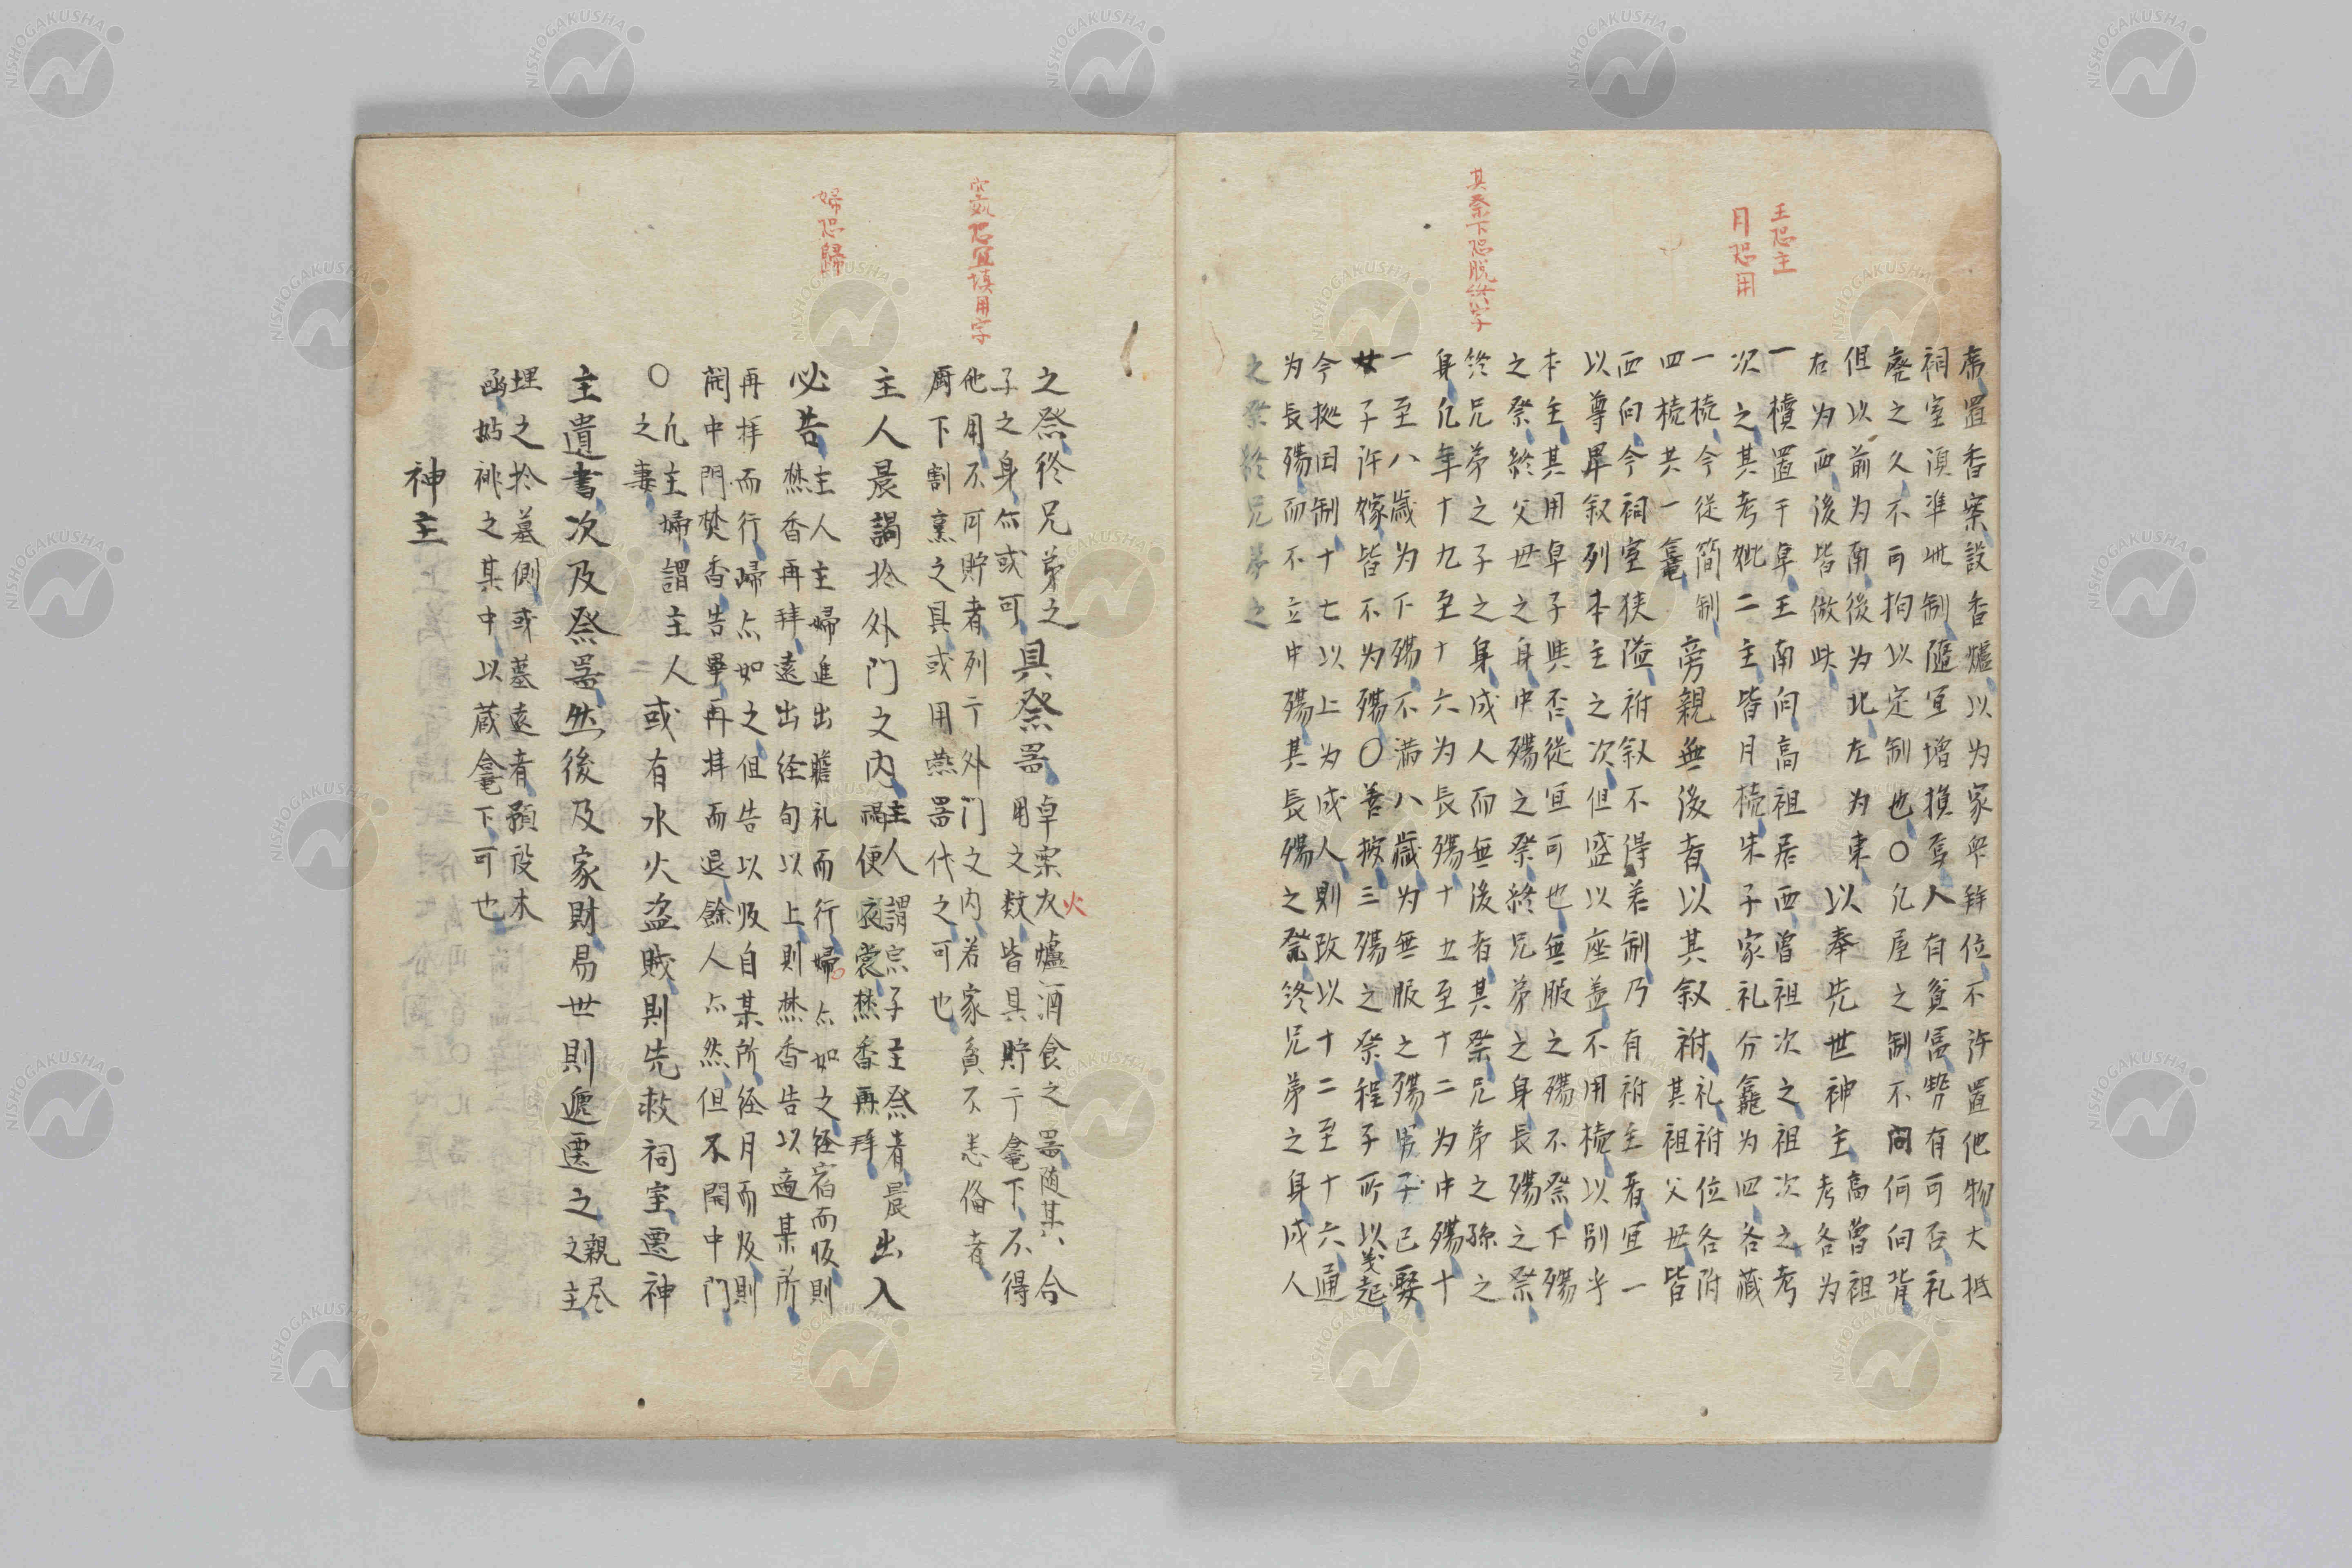 席置香案設香爐以为家衆拜位不許置他物大抵
祠室須準此制隨宜增損焉人有貧富勢有可否礼
廃之久不可拘以定制也〇凢屋之制不問何向背
但以前为南後为北左为東
右为西後皆倣此
以奉先世神主
高曽祖
考各为
一櫝置于卓王南向高祖居西曽祖次之祖次之考
次之其考妣二主皆月梳朱子家礼分龕为四各蔵
一梳今従簡制
四梳共一龕
旁親無後者以其叙祔
礼祔位各附
其祖父世皆
西向今祠室狭隘祔叙不得若制乃有祔主者宜一
以尊畢叙列本主之次但盛以座蓋不用梳以別乎
本主其用卓子與否従宜可也無服之殤不祭下殤
之祭終父世之身中殤之祭終兄弟之身長殤之祭
終兄弟之子之身成人而無後者其祭兄弟之孫之
身凢年十九至十六为長殤十五至十二为中殤十
一至八歳为下殤不満八歳为無服之殤男子已娶
女子許嫁皆不为殤〇善按三殤之祭程子所以義起
今拠田制十七以上为成人則改以十二至十六通
为長殤而不立中殤其長殤之祭終兄弟之身成人
之祭終兄弟之
王恐主
月恐用
其祭下恐脱終字
之祭終兄弟之
子之身尒或可
具祭噐
卓案火爐酒食之噐随其合
用之数皆具貯于龕下不得
火
他用不可貯者列于外门之内若家貧不恙俻者
厨下割烹之具或用燕噐代之可也
主人晨謁扵外門之内
主人謂宗子主祭者晨出入
便衣裳焚香再拜
必告
主人主婦進出瞻礼而行婦亦如之経宿而皈則
焚香再拜遠出経旬以上則焚香告以適某所
再拝而行皈亦如之但告以皈自某所経月而皈則
開中門焚香告畢再拝而退餘人亦然但不開中門
〇凢主婦謂主人
之妻
或有水火盗賊則先救祠室遷神
主遺書次及祭噐然後及家財易世則遞遷之
親尽
之主
埋之扵墓側或墓遠者預設木
凾始祧之其中以蔵龕下可也
神主
婦恐歸
恐宜填用字